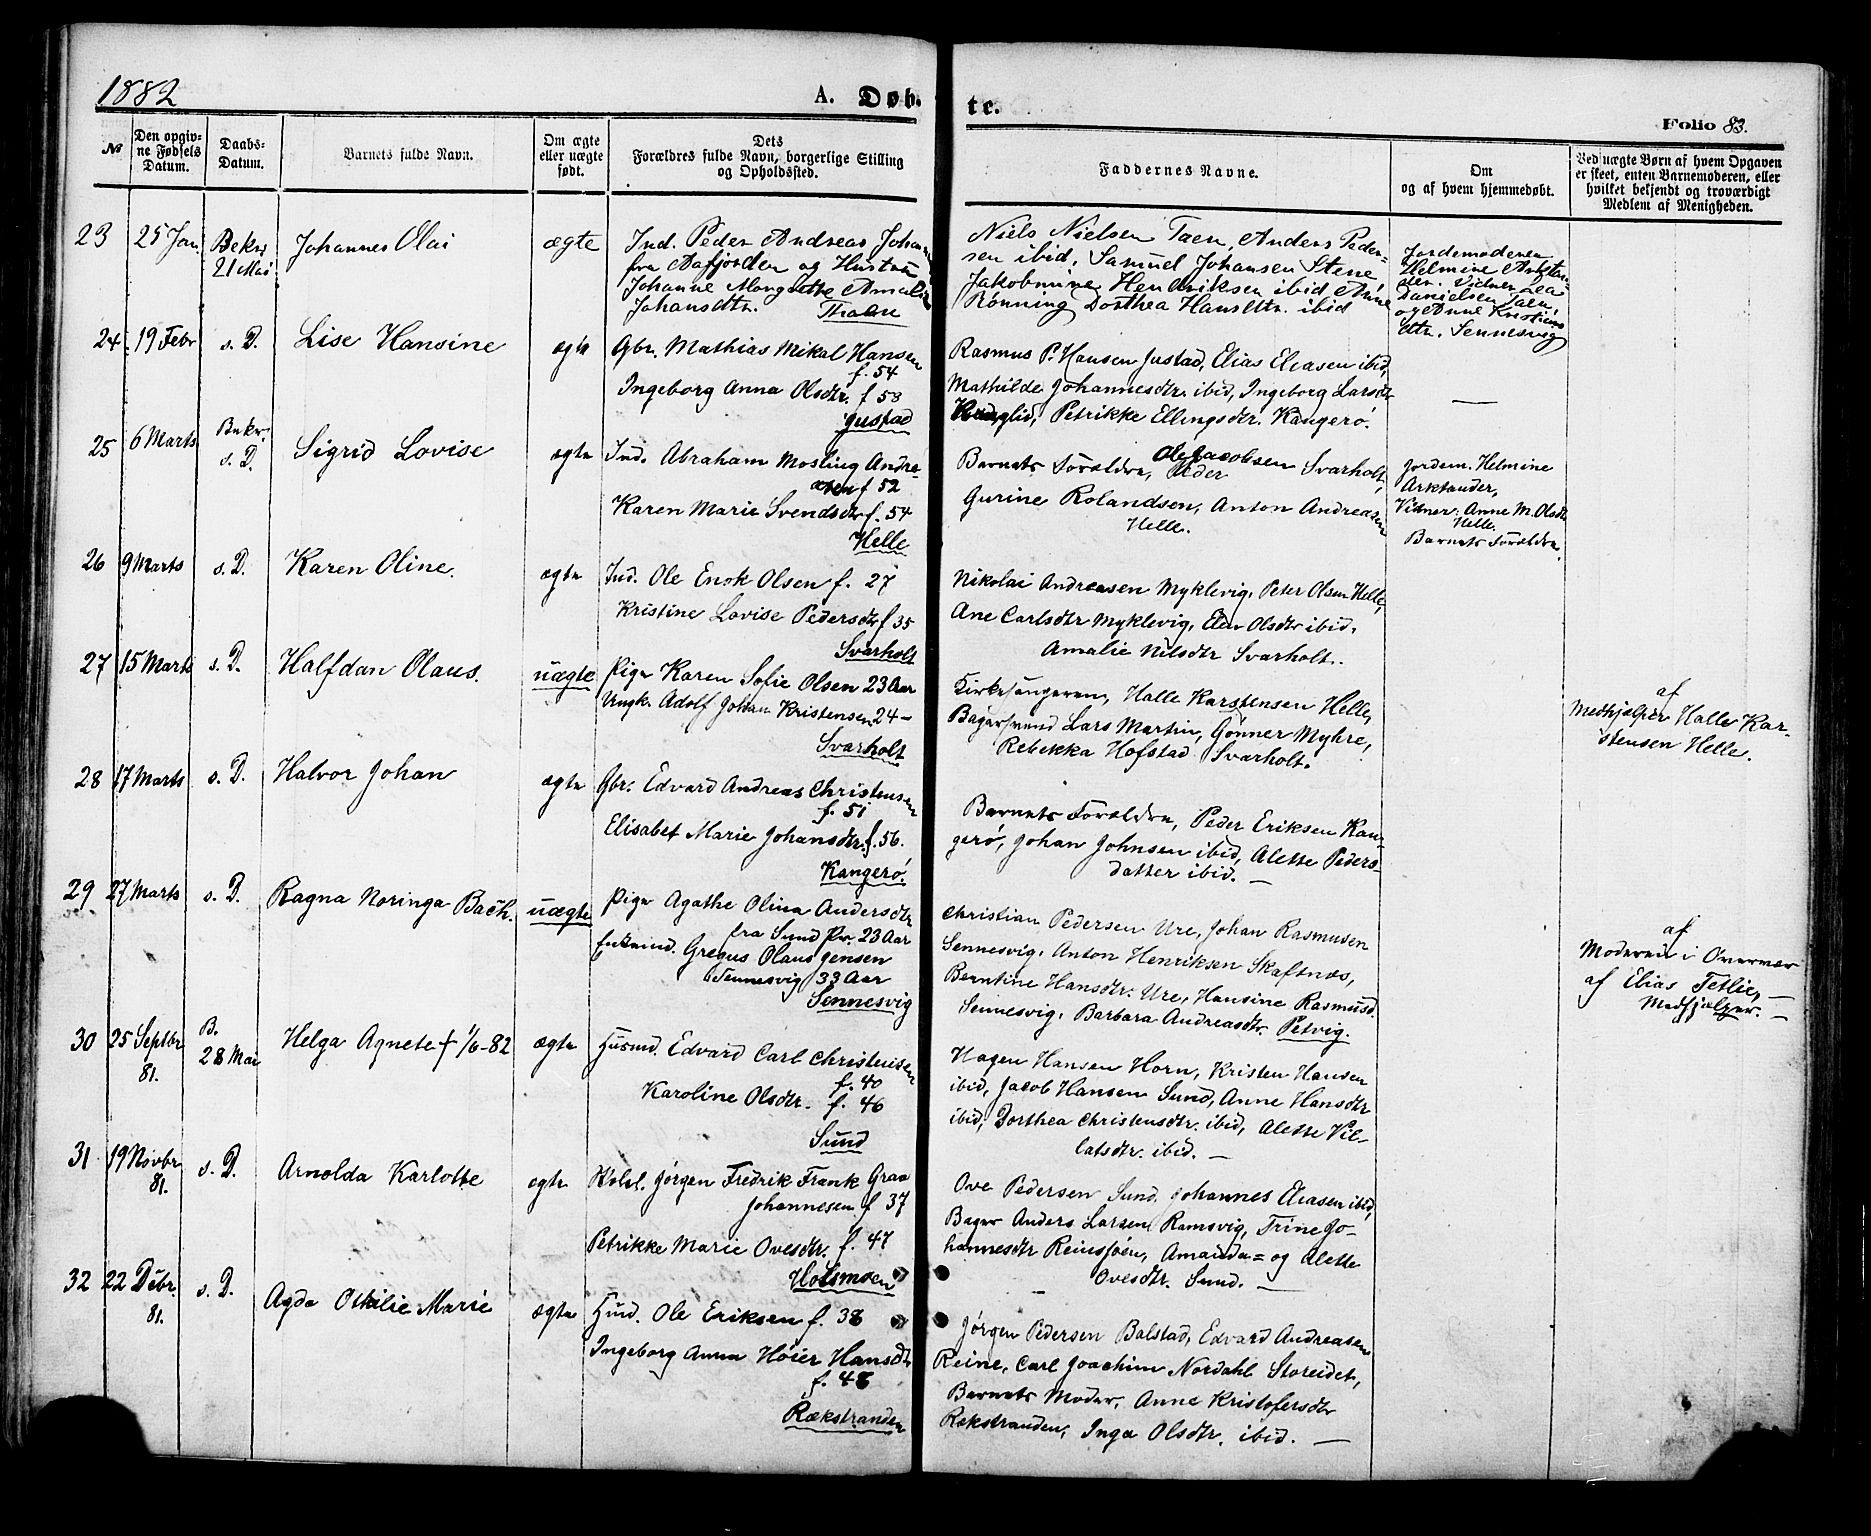 1882
A. Døb-
te.
Folio 83.
No
Den opgiv-
ne Fødsels
Datum.
Daabs-
Datum.
Barnets fulde Navn.
Om ægte
eller uægte
født.
Dets
Forældres fulde Navn, borgerlige Stilling
og Opholdssted.
Faddernes Navne.
Om
og af hvem hjemmedøbt.
Ved uægte Børn af hvem Opgaven
er skeet, enten Barnemoderen, eller
hvilket bekjendt og troværdigt
Medlem af Menigheden.
23
25 Jan
Bekr.
21 Mai
Johannes Olai
ægte
Ind. Peder Andreas Johan
fra Aafjorden og Hustru
Johanne Margrethe Amalia
Johansdtr.
Niels Nielsen Taen, Anders Peder-
sen ibid, Samuel Johansen Stene
Jakobmine Hendriksen ibid Anne
Rønning Dorthea Hansdtr. ibid
Jordemoderen
Helmine Arktan-
der. Vidner Lea
Danielsen Taen
og Anne Kristians
dtr. Sennesvig
24
19 Febr
s. D.
Lise Hansine
ægte
Gbr. Mathias Mikal Hansen
f. 54
Ingeborg Anna Olsdtr. f 58
Justad
Rasmus P. Hansen Justad, Elias Eliasen ibid,
Mathilde Johannesdtr. ibid, Ingeborg Larsdtr
Petrikke Ellingsdtr. Kangerø.
25
6 Marts
Bekr.
s. D.
Sigrid Lovise
ægte
Ind. Abraham Mosling Andre-
asen f 52
Karen Marie Svendsdtr f. 54
Helle
Barnets Forældre, Peder Ole Jacobsen Svarholt,
Gurine Rolandsen, Anton Andreasen
Helle.
Jordem. Helmine
Arktander,
Vidner: Anne M. Olsdtr
Helle.
Barnets Forældre.
26
9 Marts
s. D.
Karen Oline.
ægte
Ind. Ole Enok Olsen f. 27
Kristine Lovise Pedersdtr f 35
Svarholt
Nikolai Andreasen Myklevig, Peter Olsen Helle,
Ane Carlsdtr Myklevig, Elen Olsdtr ibid.
Amalie Nilsdtr Svarholt.
27
15 Marts
s. D.
Halfdan Olaus.
uægte
Pige Karen Sofie Olsen 23 Aar
Ungk. Adolf Johan Kristensen 24 -
Svarholt
Kirkesangeren, Halle Karstensen Helle,
Bagersvend Lars Martin, Gønner Myhre,
Rebekka Hofstad Svarholt.
af
Medhjælper Halle Kar-
stensen Helle.
28
17 Marts
s. D.
Halvor Johan
ægte
Gbr. Edvard Andreas Christensen
f. 51
Elisabet Marie Johansdtr. f. 56.
Kangerø.
Barnets Forældre, Peder Eriksen Kan-
gerø, Johan Johnsen ibid, Alette Peders-
datter ibid. —
29
27 Marts
s. D.
Ragna Noringa Bach.
uægte
Pige Agathe Olina Andersdtr
fra Sund Pr. 23 Aar
Enkemd. Gregus Olaus Jensen
Sennesvig 33 Aar
Sennesvig
Christian Pedersen Ure, Johan Rasmusen
Sennesvig, Anton Henriksen Skaftnæs,
Berntine Hansdtr. Ure, Hansine Rasmusd.
Sennesvig, Barbara Andreasdtr. Petvig.
af
Moderen i Overvær
af Elias Tetlie, —
Medhjælper. —
30
25 Septbr
81.
B.
28 Mai
Helga Agnete † 1/6-82
ægte
Husmd. Edvard Carl Christensen
f. 40
Karoline Olsdtr. f. 46
Sund
Hagen Hansen Horn, Kristen Hansen
ibid, Jacob Hansen Sund, Anne Hansdtr
ibid, Dorthea Christensdtr. ibid, Alette Vil-
latsdtr. ibid. —
31
19 Novbr
81.
s. D.
Arnolda Karlotte
ægte
Jørgen Fredrik Frank Graa
Johannesen f 37
Petrikke Marie Ovesdtr. f. 47
Holsmoen
Ove Pedersen Sund, Johannes Eliasen ibid,
Bager Anders Larsen Ramsvig, Trine Jo-
hannesdtr Reinsjøen, Amanda = og Alette
Ovesdtr. Sund. —
32
22 Debr
81.
s. D.
Agda Othilie Marie
ægte
Husd. Ole Eriksen f. 38
Ingeborg Anna Høier Hansdtr
f. 48
Rækstranden
Jørgen Pedersen Balstad, Edvard Andreasen
Reine, Carl Joachim Nordahl Storeidet,
Barnets Moder, Anne Kristofersdtr
Rækstranden, Inga Olsdtr. ibid. —